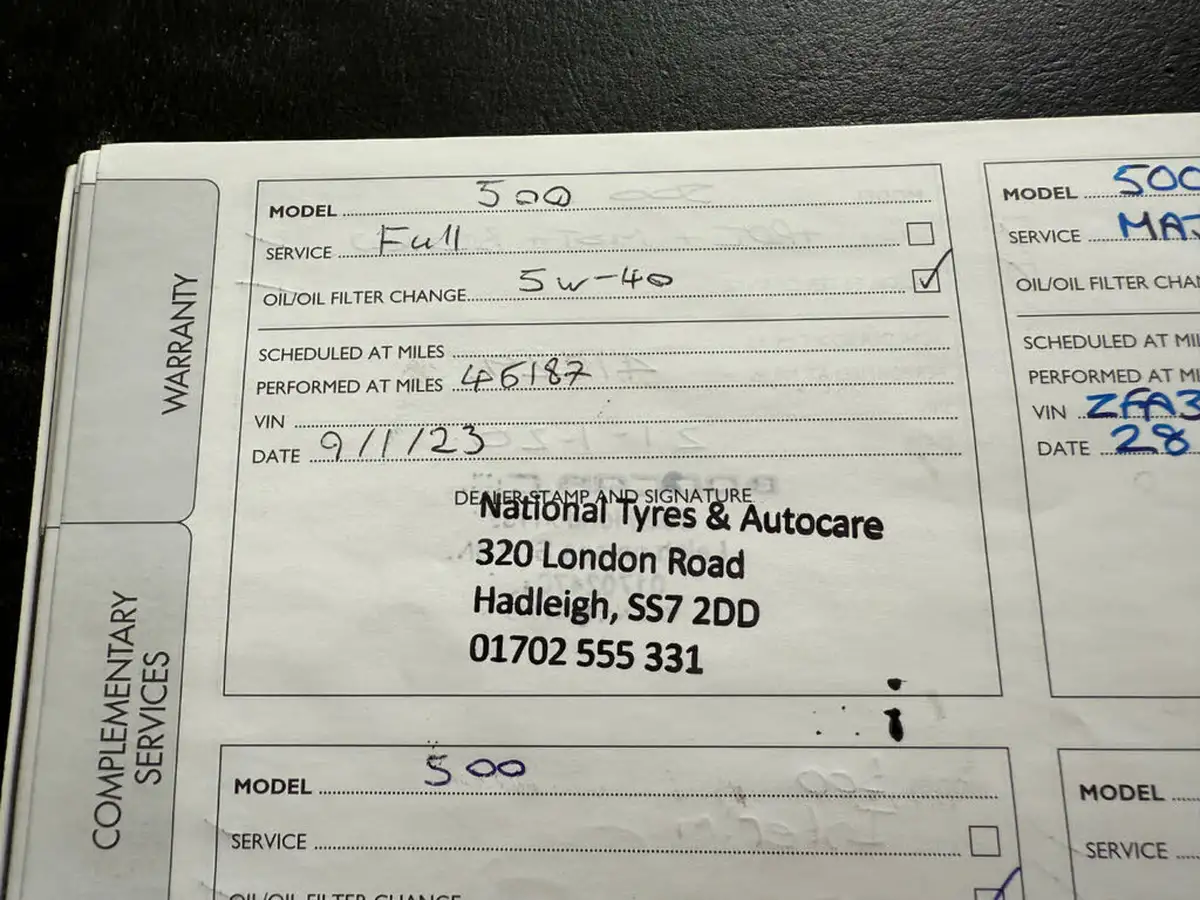 WARRANTY
COMPLEMENTARY
SERVICES
MODEL 500
SERVICE Full
OIL/OIL FILTER CHANGE 5w-40
SCHEDULED AT MILES
PERFORMED AT MILES 46187
VIN
DATE 9/1/23
DEALER STAMP AND SIGNATURE
National Tyres & Autocare
320 London Road
Hadleigh, SS7 2DD
01702 555 331
MODEL 500
SERVICE MAJ
OIL/OIL FILTER CHAN
SCHEDULED AT MIL
PERFORMED AT MI
VIN ZFA3
DATE 28
MODEL 500
SERVICE
OIL/OIL FILTER CHANGE
MODEL
SERVICE